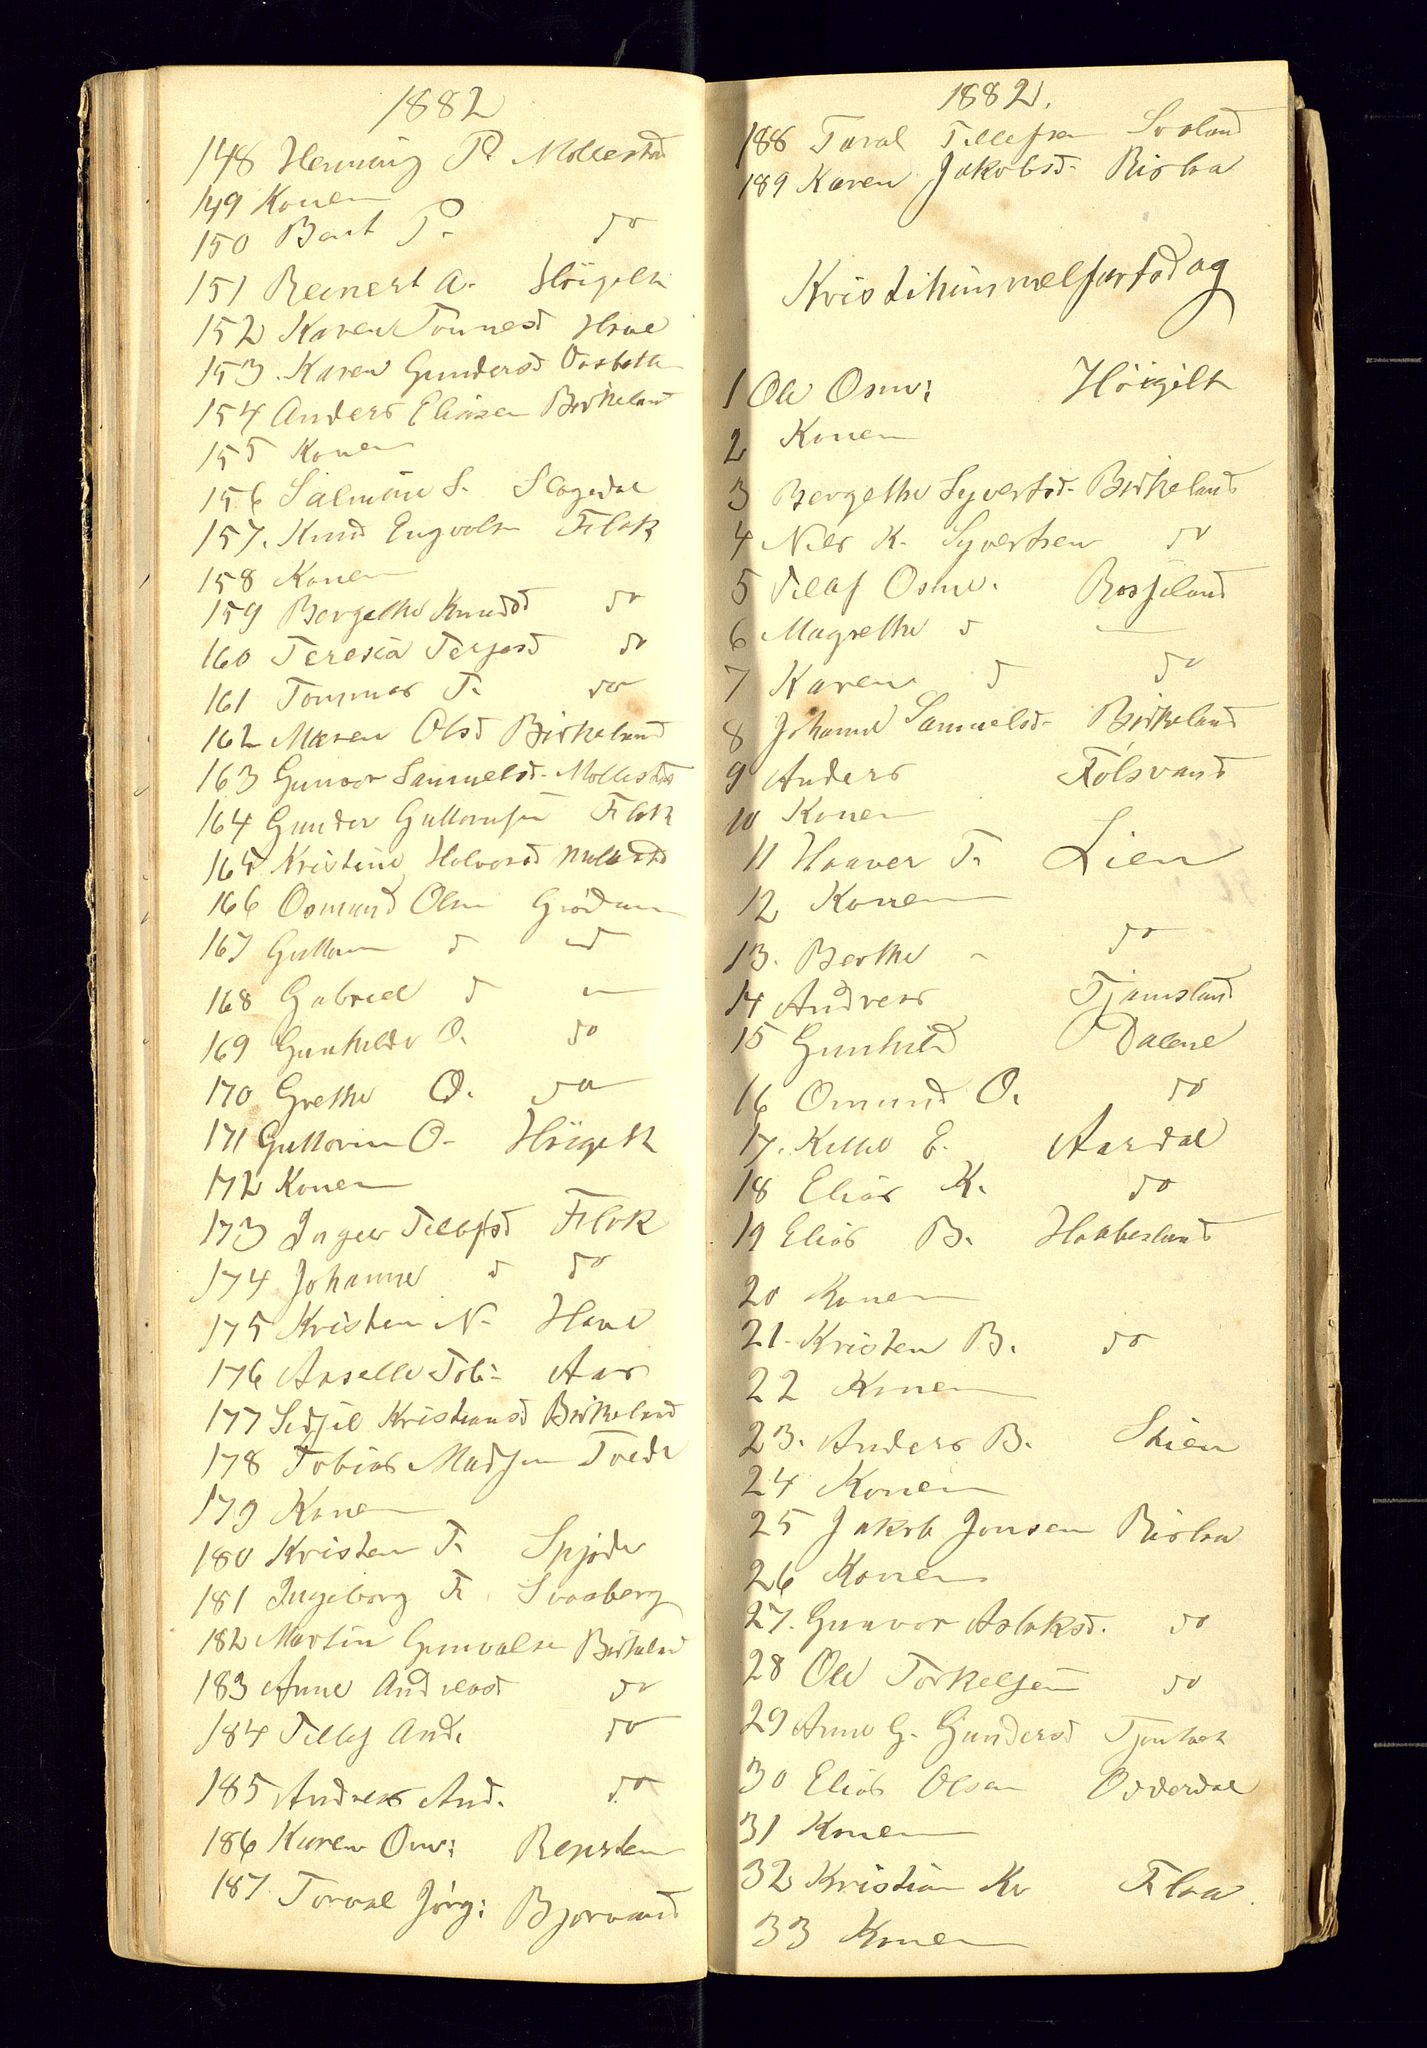 1882
148 Henning P. Mollestad
149 Konen
150 Bent P. do
151 Reinert A. Höigilt
152 Karen Tønnesd Haae
153. Karen Gundersd
154 Anders Eliasen Birkeland
155 Konen
156 S. Slogedal
157. Knud Engvolsn Flak
158 Konen
159 Bergethe Knudsd do
160 Teresia Terjesd do
161 Tommas T. do
162 Maren Olsd Birkeland
163 Gunvor Samuelsd. Mollestad
164 Gunder Guttormsen Flak
165 Kristine Halvorsd Mollestd
166 Osmund Olsn
167 Guttorm d
168 Gabriel d —
169 Gunhilde O. do
170 Grethe O. do
171 Guttorm O. Höigilt
172 Konen
173 Inger Tellefsd Flak
174 Johanne d do
175 Kristen N. Haae
176 Aaselle Tob: Aas
177 Sidsel Kristiansd Birkeland
178 Tobias Madsen Tvede
179 Konen
180 Kristen T. Spjøde
181 Ingeborg T. Svaaberg
182 Martin Gunvalsn Birkeland
183 Anne Andreasd do
184 Tellef And. do
185 Andreas And. do
186 Karen Osm:
187. Torval Jörg:
1882.
188 Taral Tellefsen Svaland
189 Karen Jakobsd. Risløa
Kristihimmelfartsdag
1 Ole Osm: Höigilt
2 Konen
3 Bergethe Syvertsd. Birkeland
4 Niels K. Syvertsen do
5 Tellef Osm. Rosseland
6 Magrethe d —
7 Karen d do
8 Johanne Samuelsd. Birkeland
9 Anders Fölsvand
10 Konen
11 Haaver T. Lien
12 Konen
13. Berthe - do
14 Andreas Tjomsland
15 Gunhild Dalene
16 Omund O. do
17. Kittel E. Aardal
18 Elias K. do
19 Elias B. Haabesland
20 Konen
21. Kristen B. do
22 Konen
23. Anders B. Skien
24 Konen
25 Jakob Jonsen Risløa
26 Konen
27. Gunvor Aslaksd. do
28 Ole Torkelsen do
29 Anne G. Gundersd
30 Elias Olsen Odderdal
31 Konen
32 Kristian Kr Flaa
33 Konen